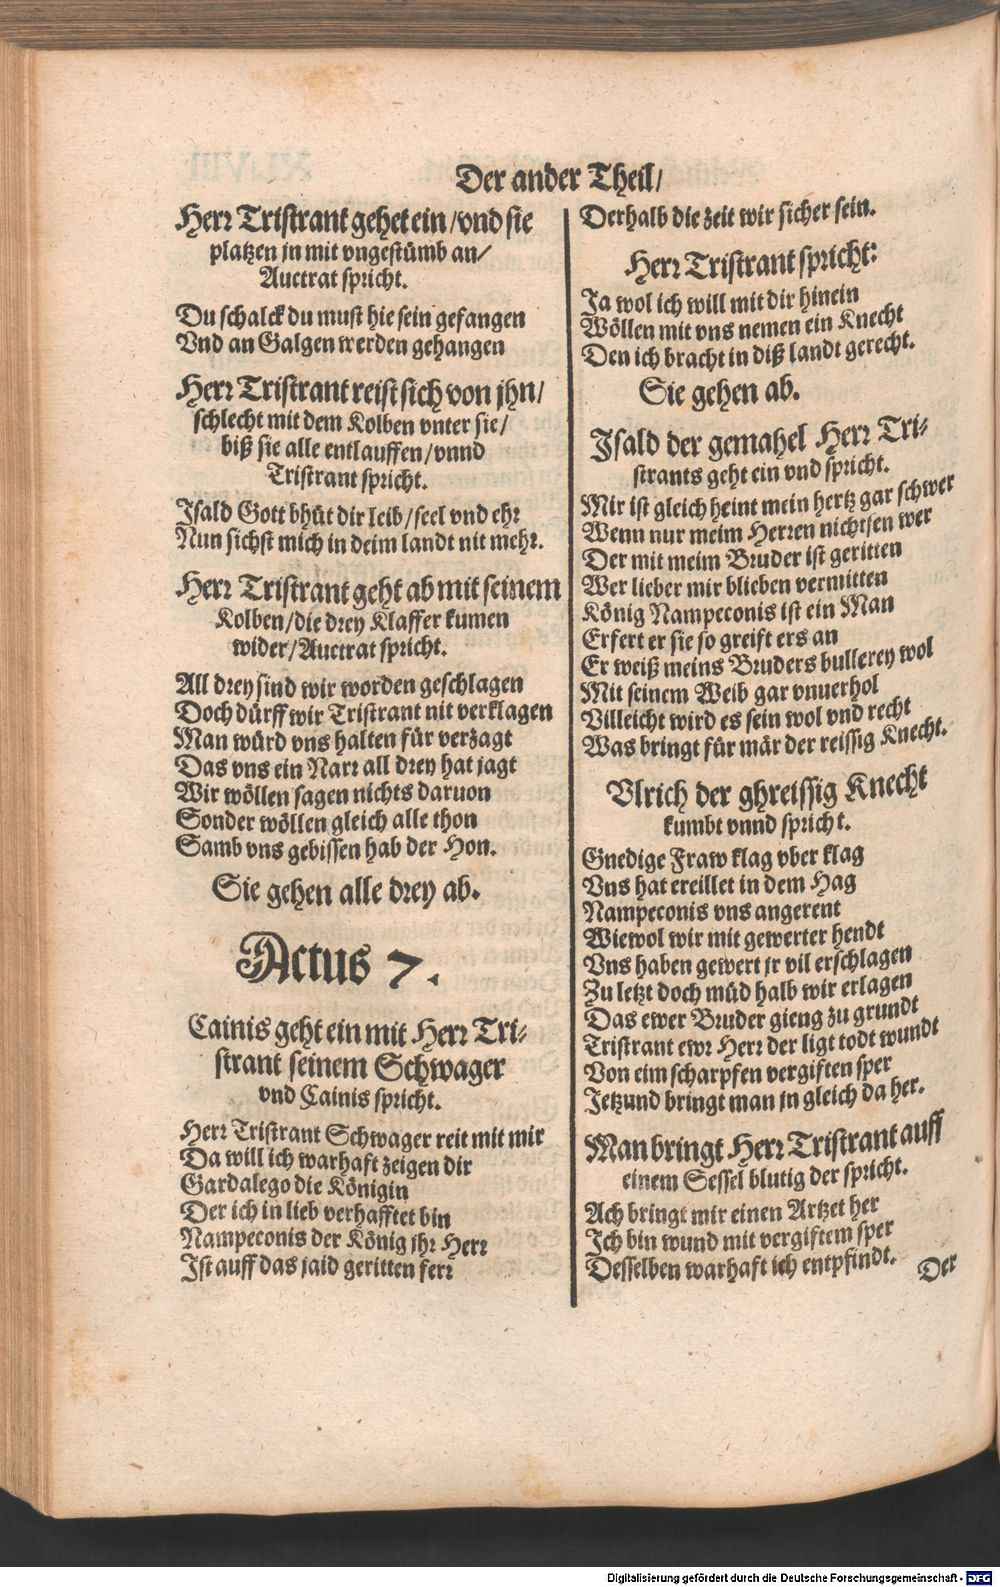 Der ander Theil/
Herr Tristrant gehet ein/vnd sie
platzen in mit vngestümb an/
Auctrat spricht.
Du schalck du must hie sein gefangen
Vnd an Galgen werden gehangen
Herr Tristrant reist sich von jhn/
schlecht mit dem Kolben vnter sie/
biß sie alle entlauffen/vnnd
Tristrant spricht.
Isald Gott bhüt dir leib/seel vnd ehr
Nun sichst mich in deim landt nit mehr.
Herr Tristrant geht ab mit seinem
Kolben/die drey Klaffer kumen
wider/Auctrat spricht.
All drey sind wir worden geschlagen
Doch dürff wir Tristrant nit verklagen
Man würd vns halten für verzagt
Das vns ein Narr all drey hat jagt
Wir wöllen sagen nichts daruon
Sonder wöllen gleich alle thon
Samb vns gebissen hab der Hon.
Sie gehen alle drey ab.
Actus 7.
Cainis geht ein mit Herr Tri-
strant seinem Schwager
vnd Cainis spricht.
Herr Tristrant Schwager reit mit mir
Da will ich warhaft zeigen dir
Gardalego die Königin
Der ich in lieb verhafftet bin
Nampeconis der König jhr Herr
Ist auff das jaid geritten ferr
Derhalb die zeit wir sicher sein.
Herr Tristrant spricht:
Ja wol ich will mit dir hinein
Wöllen mit vns nemen ein Knecht
Den ich bracht in diß landt gerecht.
Sie gehen ab.
Isald der gemahel Herr Tri-
strants geht ein vnd spricht.
Mir ist gleich heint mein hertz gar schwer
Wenn nur meim Herren nichtsen wer
Der mit meim Bruder ist geritten
Wer lieber mir blieben vermitten
König Nampeconis ist ein Man
Erfert er sie so greift ers an
Er weiß meins Bruders bullerey wol
Mit seinem Weib gar vnuerhol
Villeicht wird es sein wol vnd recht
Was bringt für mär der reissig Knecht.
Vlrich der ghreissig Knecht
kumbt vnnd spricht.
Gnedige Fraw klag vber klag
Vns hat ereillet in dem Hag
Nampeconis vns angerent
Wiewol wir mit gewerter hendt
Vns haben gewert jr vil erschlagen
Zu letzt doch müd halb wir erlagen
Das ewer Bruder gieng zu grundt
Tristrant ewr Herr der ligt todt wundt
Von eim scharpfen vergiften sper
Jetzund bringt man jn gleich da her.
Man bringt Herr Tristrant auff
einem Sessel blutig der spricht.
Ach bringt mir einen Artzet her
Ich bin wund mit vergiftem sper
Desselben warhaft ich entpfindt.
Der
Digitalisierung gefördert durch die Deutsche Forschungsgemeinschaft - DFG